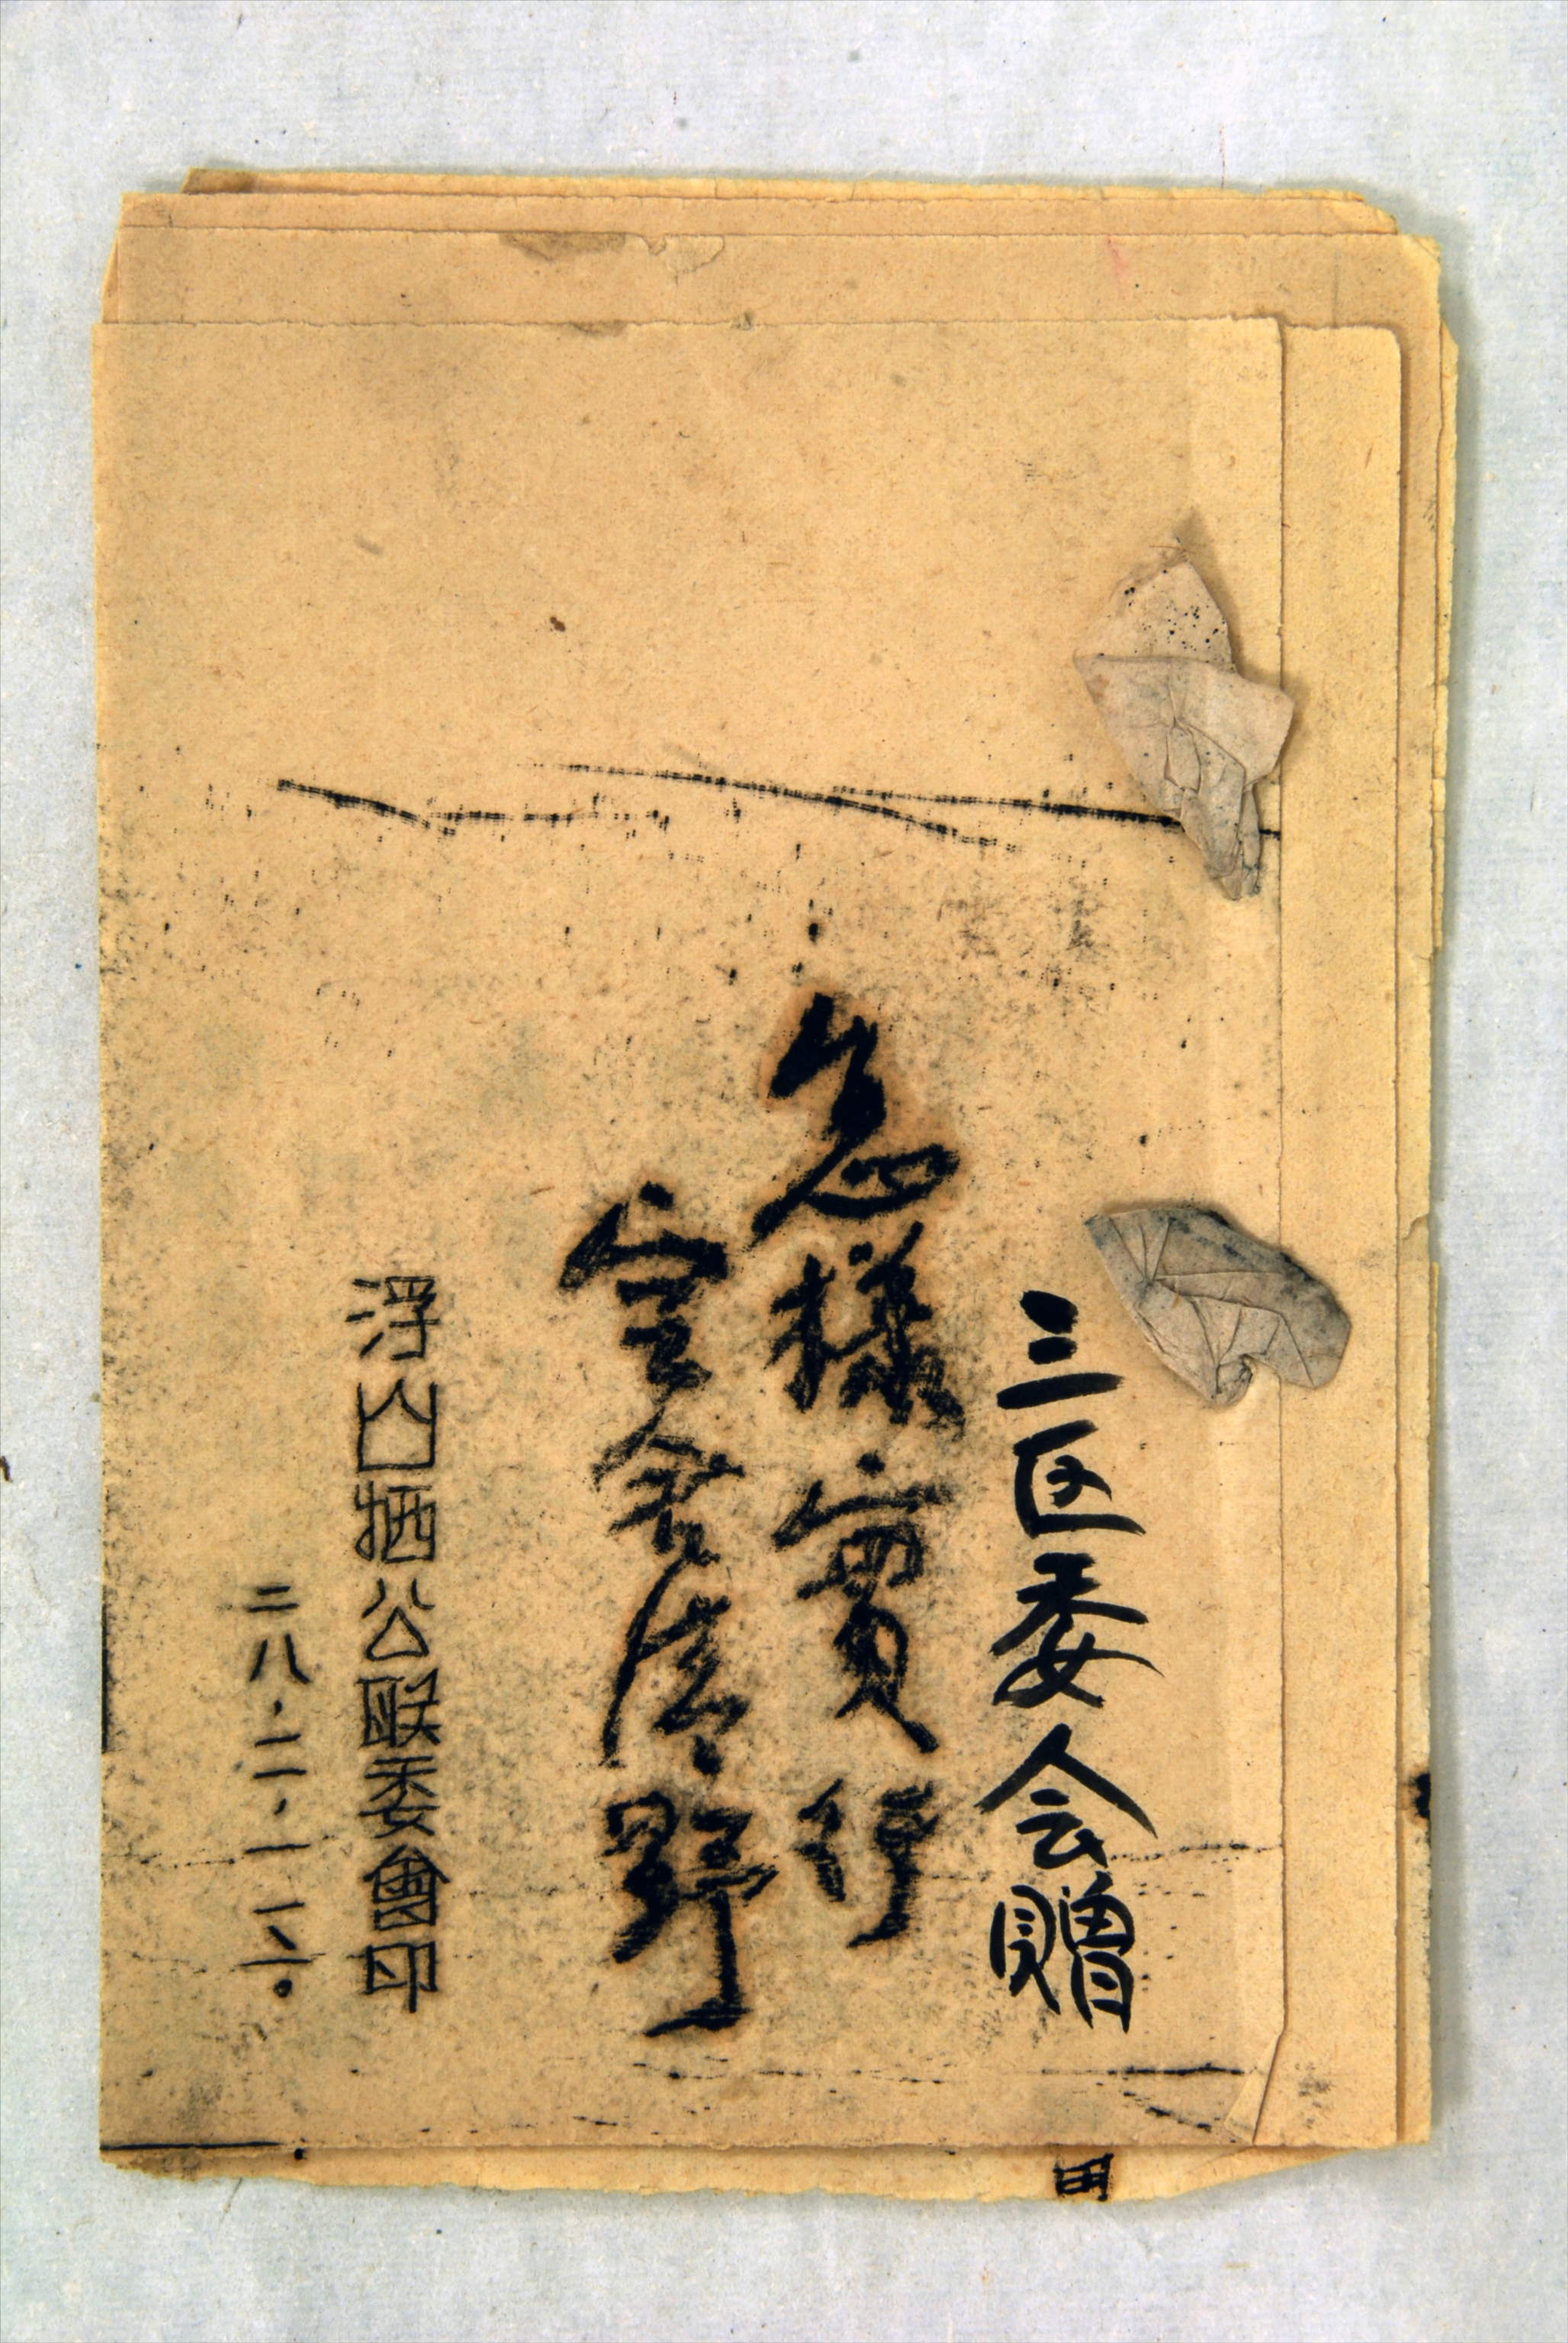 三区委会赠
怎樣實行
空舍清野
浮山牺公联委會印
二八·二·一二。